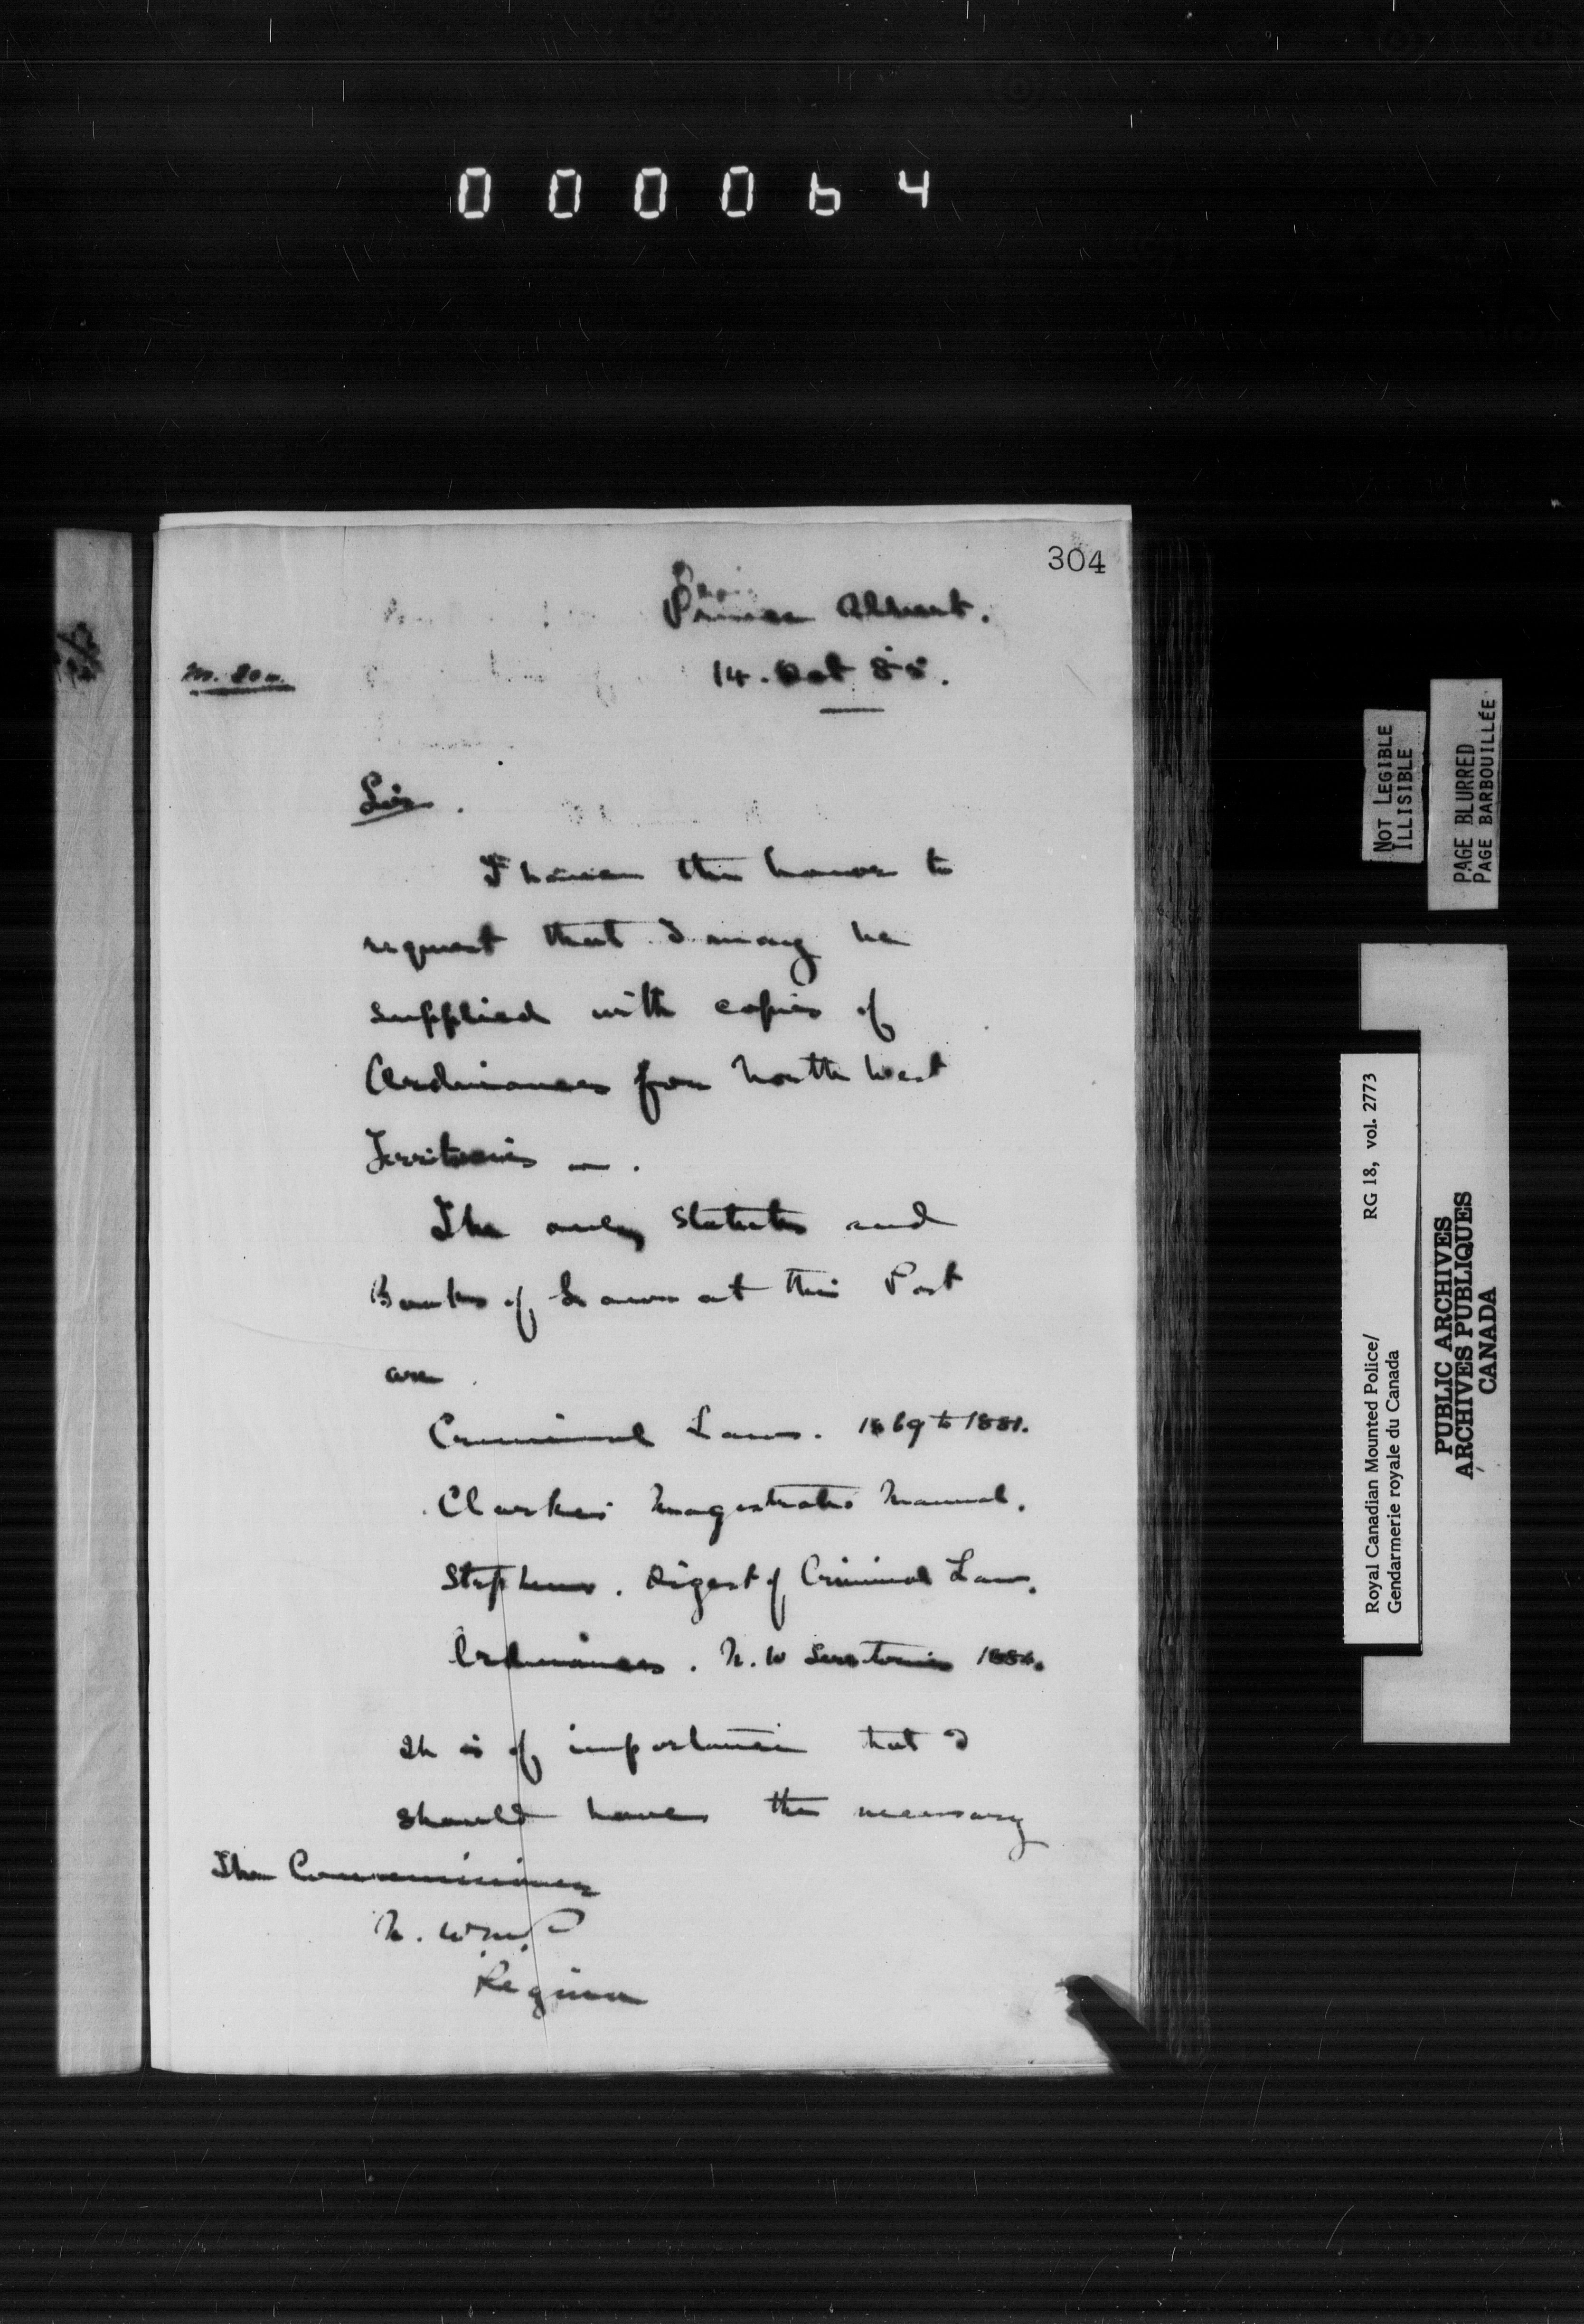 000064
304
Prince Albert.
14. Oct 85.
Sir.
I have the honor to
request that I may be
supplied with copies of
Ordinances for North West
Territories
The only Statutes and
Books of Laws at this Post
are
Criminal Laws. 1869 to 1881.
Clarkes Magistrates Manual.
Stephens. Digest of Criminal Law.
Ordinances. N.W Territories
It is of importance that I
should have the necessary
The Commissioner
N.W.M.P
Regina
NOT LEGIBLE
ILLISIBLE
PAGE BLURRED
PAGE BARBOUILLÉE
Royal Canadian Mounted Police/ RG 18, vol. 2773
Gendarmerie royale du Canada
PUBLIC ARCHIVES
ARCHIVES PUBLIQUES
CANADA